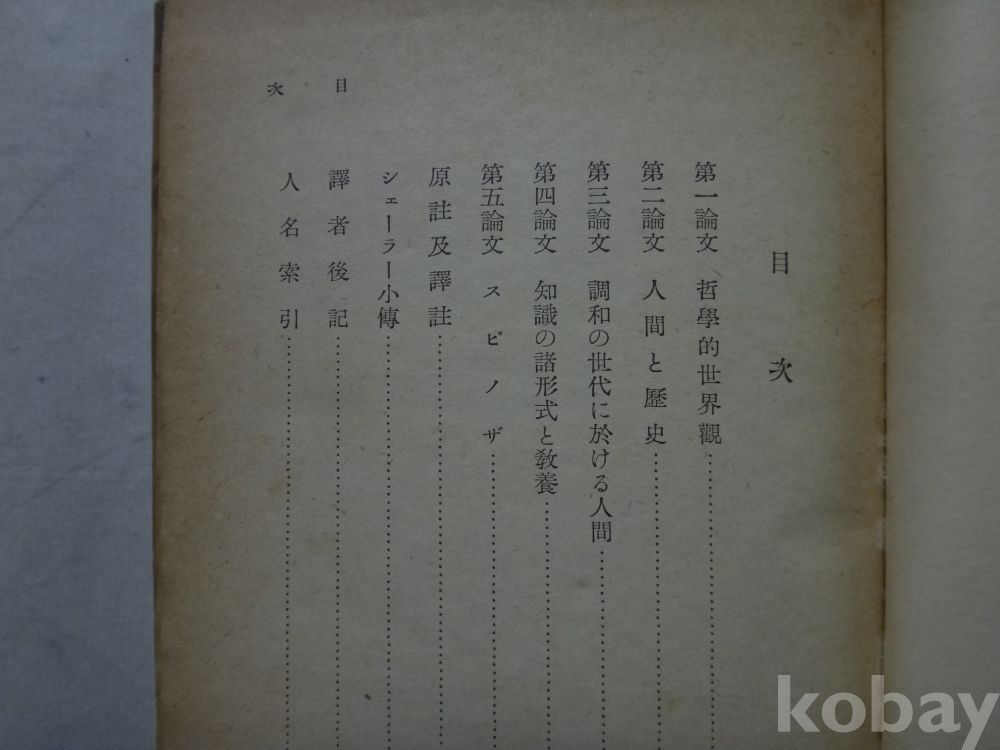 目次
第一論文 哲學的世界觀
第二論文 人間と歷史
第三論文 調和の世代に於ける人間
第四論文 知識の諸形式と敎養
第五論文 スピノザ
原註及譯註
シェーラー小傳
譯者後記
人名索引
目次
kobay